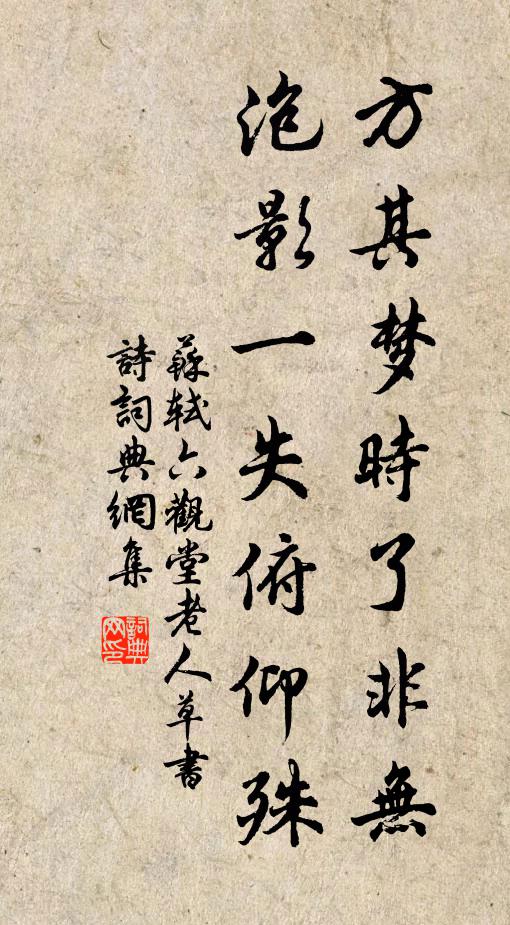 方其梦時了非無
泡影一失俯仰殊
蘇軾六觀堂老人草書
詩詞典網集
詞典網印